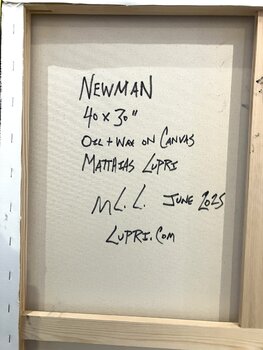 NEWMAN
40 x 30"
OIL + WAX ON CANVAS
MATTHIAS LUPRI
M L. L. JUNE 2025
LUPRI.COM